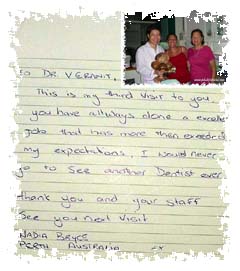 To DR VERANIT,
This is my third visit to you,
you have allways done a excelle
Job that has more then exceeded
my expectations. I would never
go to See another Dentist ever.
Thank you and your staff
See you next visit
NADIA BRYCE
PERTH AUSTRALIA